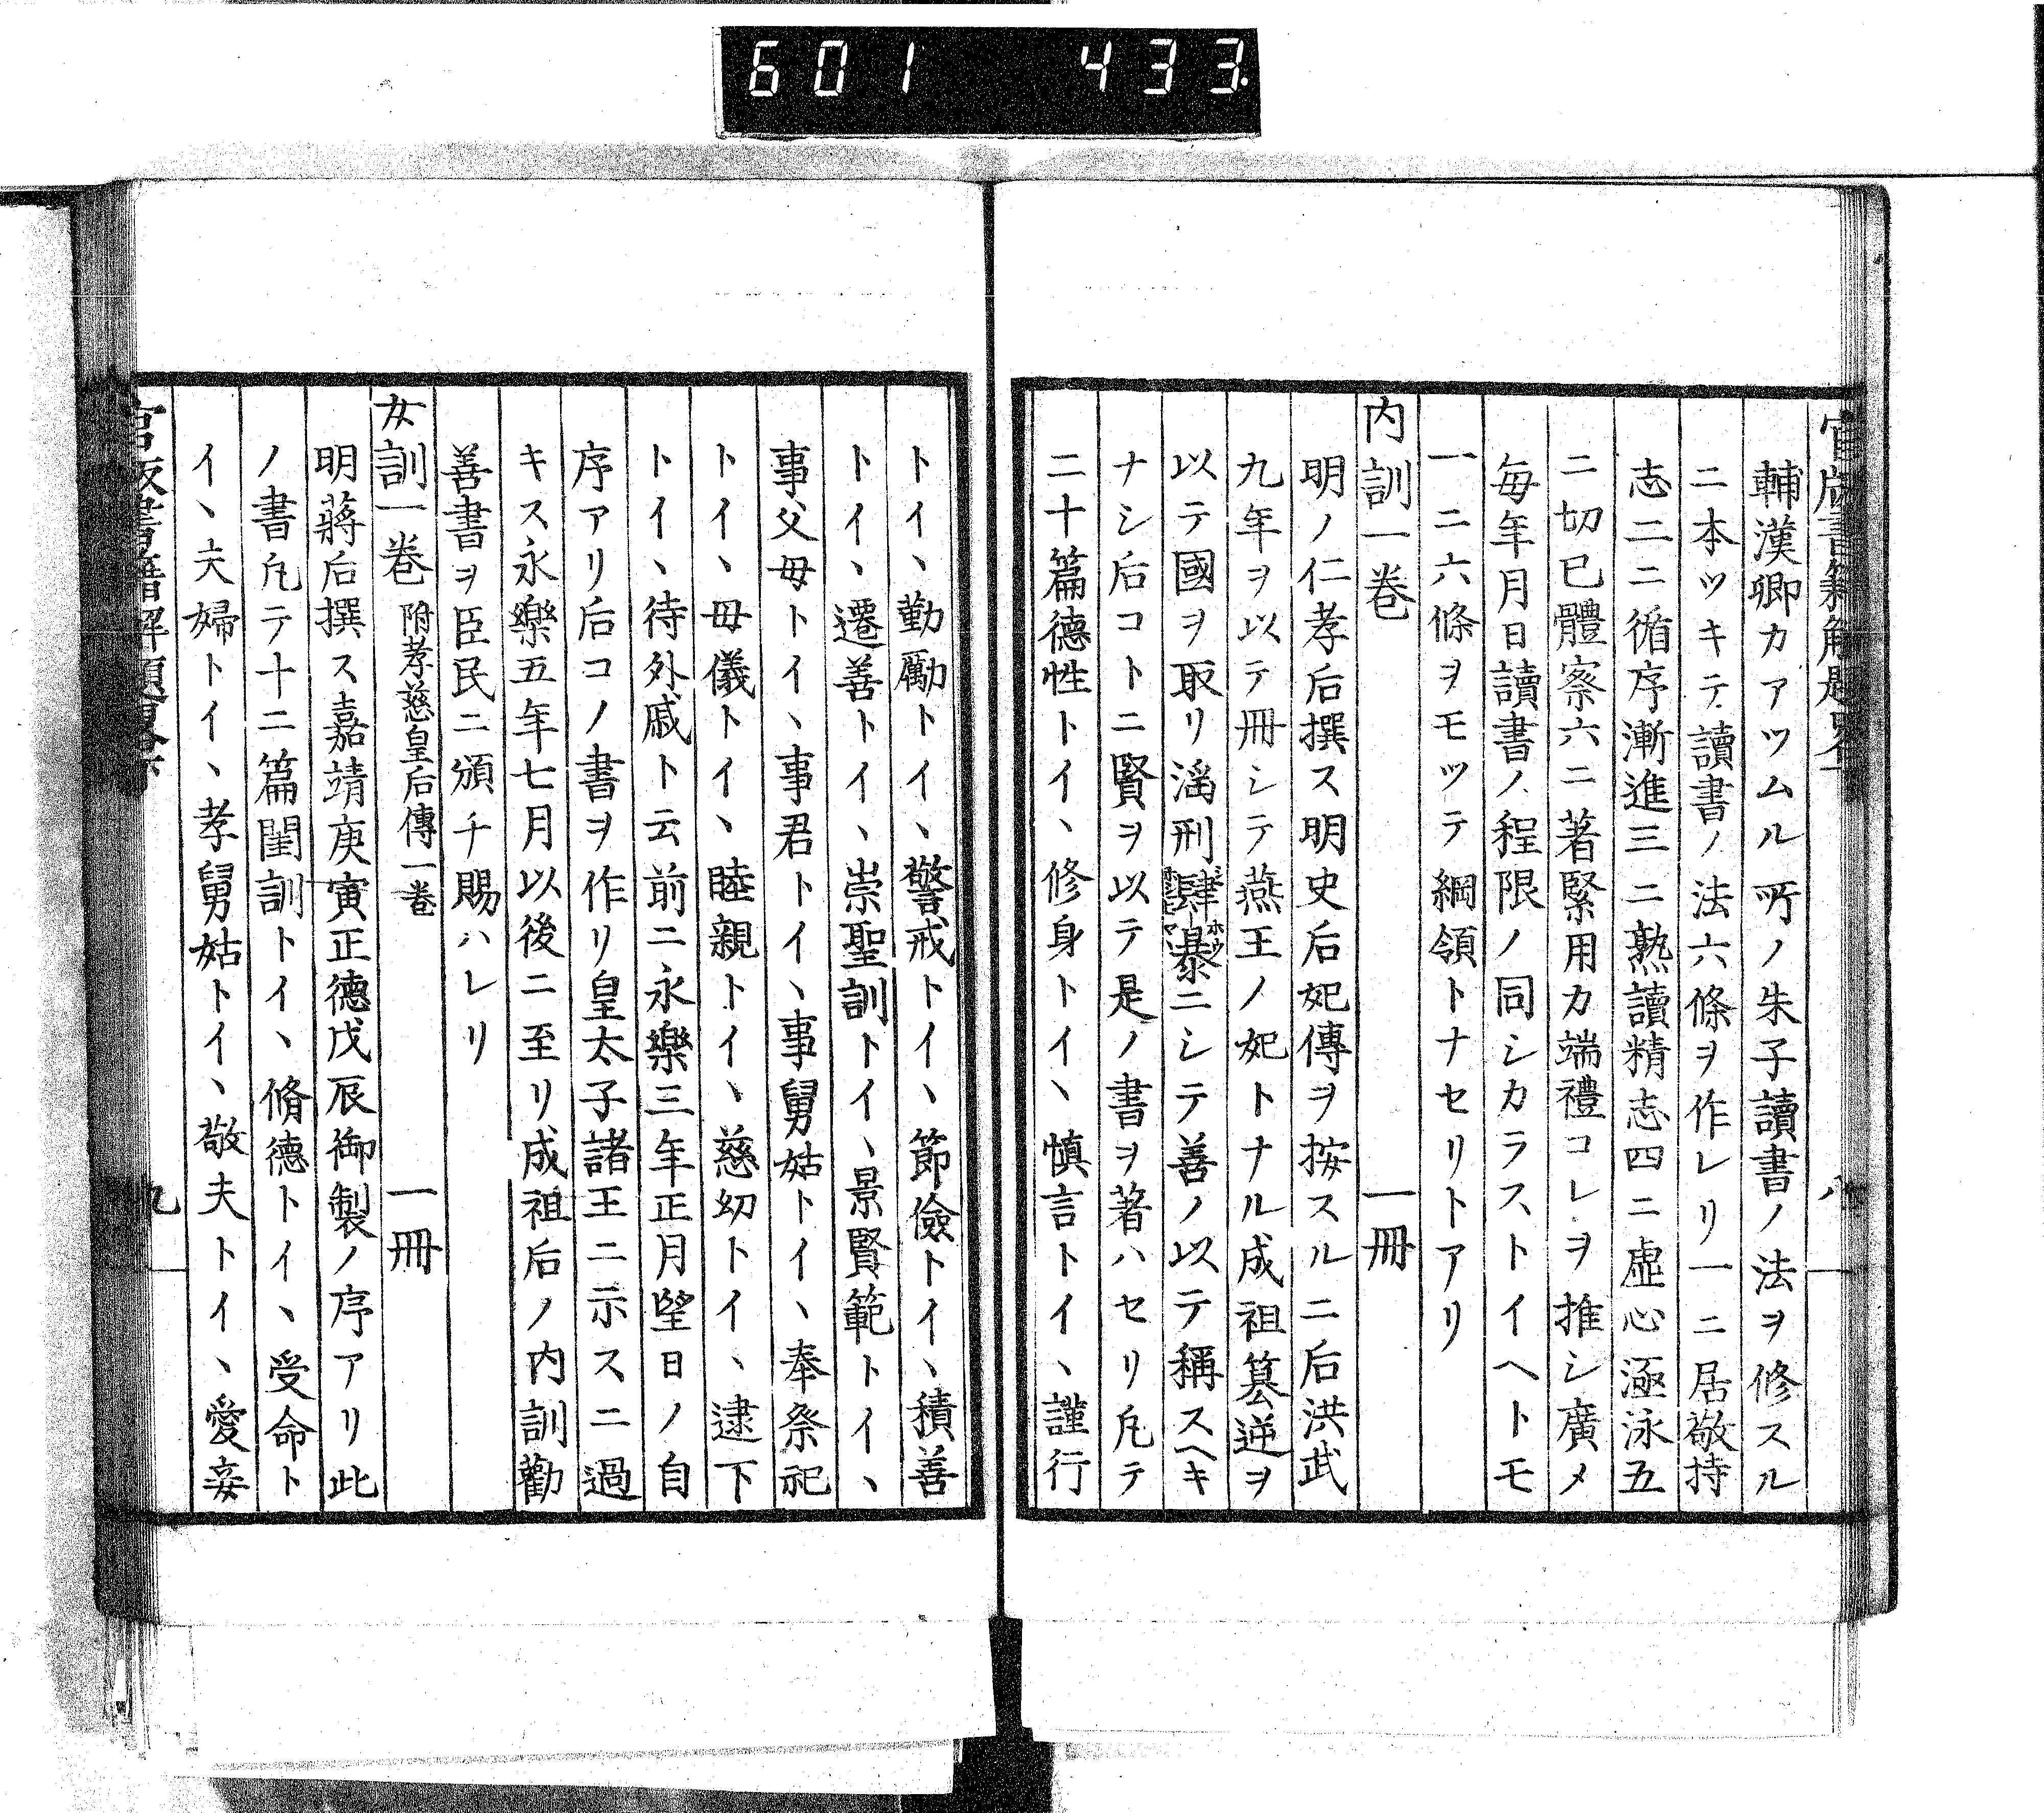 601 433.
輔漢卿カアツムル所ノ朱子讀書ノ法ヲ修スル
ニ本ツキテ讀書ノ法六條ヲ作レリ一ニ居敬持
志二ニ循序漸進三ニ熟讀精志四ニ虛心涵泳五
ニ切已體察六ニ著緊用力端禮コレヲ推シ廣メ
毎年月日讀書ノ程限ノ同シカラストイヘトモ
一ニ六條ヲモツッテ綱領トナセリトアリ
内訓一巻 一冊
明ノ仁孝后撰ス明史后妃傳ヲ按スルニ后洪武
九年ヲ以テ冊シテ燕王ノ妃トナル成祖簒逆ヲ
以テ國ヲ取リ滛刑肆暴ニシテ善ノ以テ稱スヘキ
ナシ后コトニ賢ヲ以テ是ノ書ヲ著ハセリ凢テ
二十篇德性トイヽ修身トイヽ慎言トイヽ謹行
トイヽ勤勵トイヽ警戒トイヽ節儉トイヽ積善
トイヽ遷善トイヽ崇聖訓トイヽ景賢範トイヽ
事父母トイヽ事君トイヽ事舅姑トイヽ奉祭祀
トイヽ母儀トイヽ睦親トイヽ慈幼トイヽ逮下
トイヽ待外戚ト云前ニ永樂三年正月望日ノ自
序アリ后コノ書ヲ作リ皇太子諸王ニ示スニ過
キス永樂五年七月以後ニ至リ成祖后ノ内訓勸
善書ヲ臣民ニ頒チ賜ハレリ
女訓一巻 附孝慈皇后傳一巻 一冊
明蔣后撰ス嘉靖庚寅正德戊辰御製ノ序アリ此
ノ書凢テ十二篇閨訓トイヽ脩德トイヽ受命ト
イヽ夫婦トイヽ孝舅姑トイヽ敬夫トイヽ愛妾
九